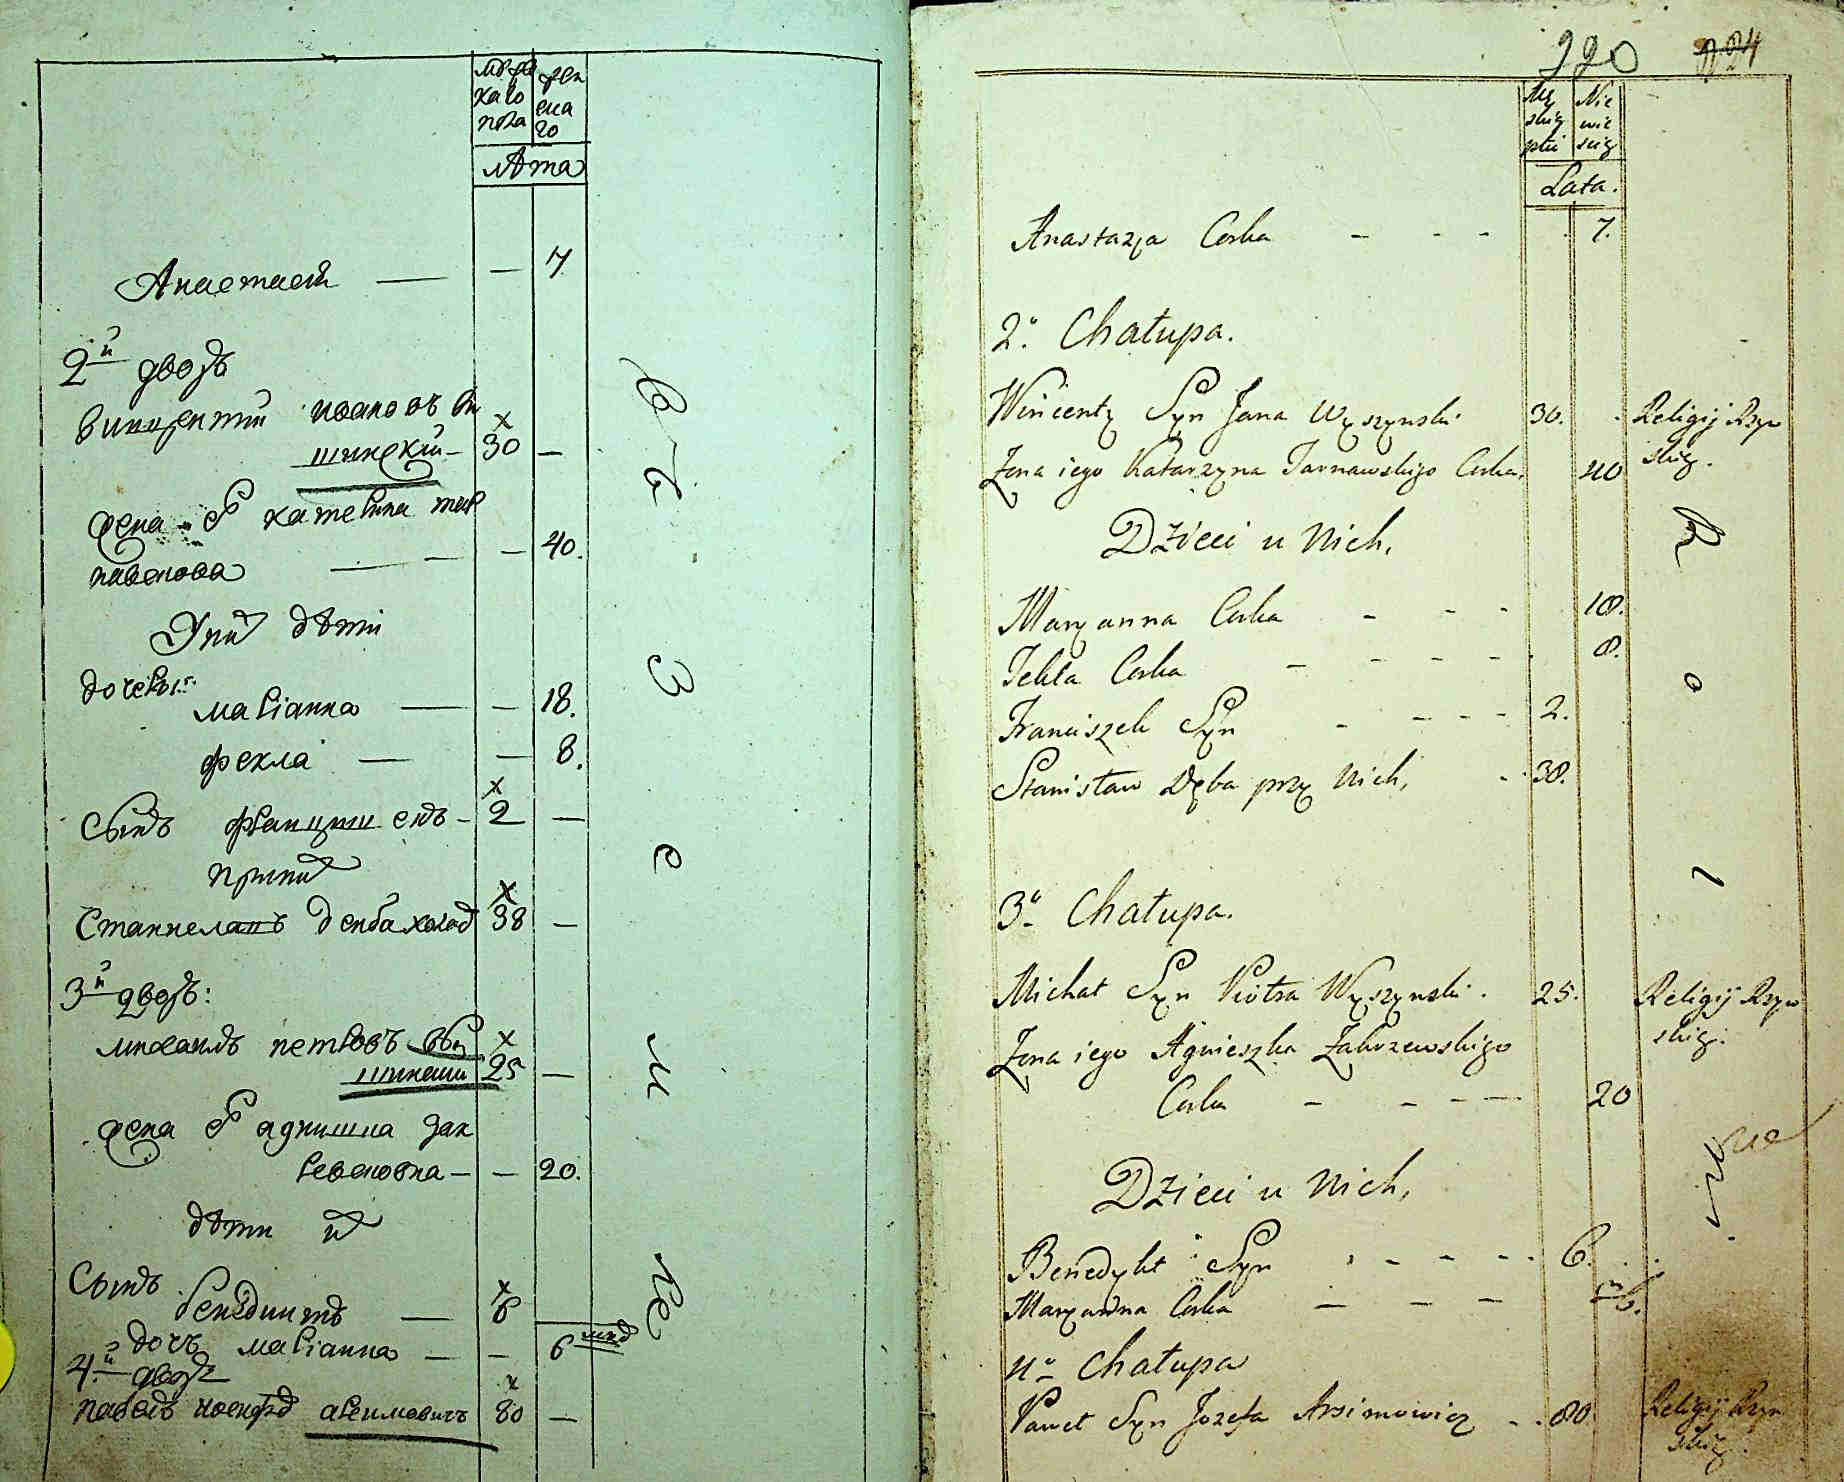 мужскаго пола
женскаго
Лѣта
Анастасія — — 7
2й дворъ
Винцентий Ивановъ Вы
шинский — 30 —
жена Катерина Тар
навскова — — 40.
У них дѣти
дочеры:
Марианна — — 18.
Фекла — — 8.
Сынъ Францишекъ — 2 —
При них
Станиславъ Демба холост 38 —
3й дворъ:
Михаилъ Петровъ Вы
шински 25 —
жена Агнишка Зак
ревсковна — — 20.
дѣти их
Сынъ
Бенедиктъ — 6
дочь Марианна — — 6 мцъ
4й дворъ
Павелъ Иосифов Арсимовичъ 80 —
220
Męskiey płci
Niewieściey
Lata.
Anastazya Corka - - - . 7.
2o. Chałupa.
Wincenty Syn Jana Wyszynski 30. Religij Rzym
skiey.
Zona iego Katarzyna Tarnawskiego Corka. 40
Dzieci u Nich,
Maryanna Corka - - - 18.
Tekla Corka - - - - 8.
Franciszek Syn - - - - 2.
Stanisław Dęba przy Nich, - 38.
3o. Chałupa.
Michał Syn Piotra Wyszynski. 25. Religij Rzym
skiey.
Zona iego Agnieszka Zakrzewskiego
Corka - - - - 20
Dzieci u Nich,
Benedykt Syn - - - - 6.
Maryanna Corka - - - m 6.
4o Chałupa
Paweł Syn Jozefa Arsimowicz - . 80 Religij Rzym
skiey.